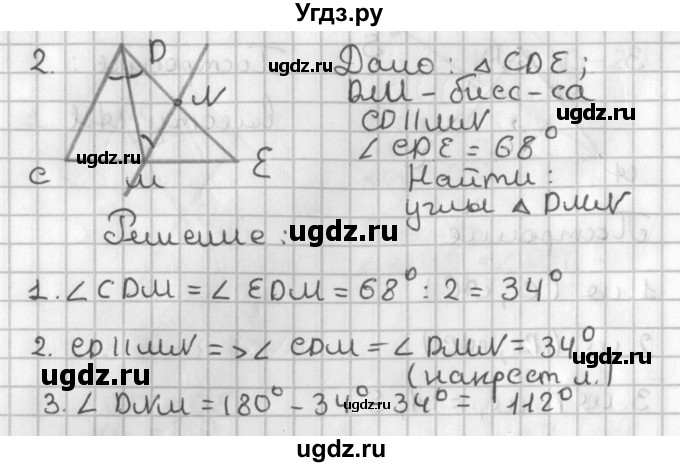 Угдз.ру
2.
D
N
C
M
E
ugdz.ru
ugdz.ru
ugdz.ru
Дано: △CDE;
DM - бисс-са
CD||MN
∠CDE = 68°
Найти:
углы △DMN
Решение:
ugdz.ru
1. ∠CDM = ∠EDM = 68° : 2 = 34°
2. CD||MN => ∠CDM = ∠DMN = 34°
(накрест л.)
ugdz.ru
ugdz.ru
3. ∠DNM = 180° - 34° - 34° = 112°
ugdz.ru